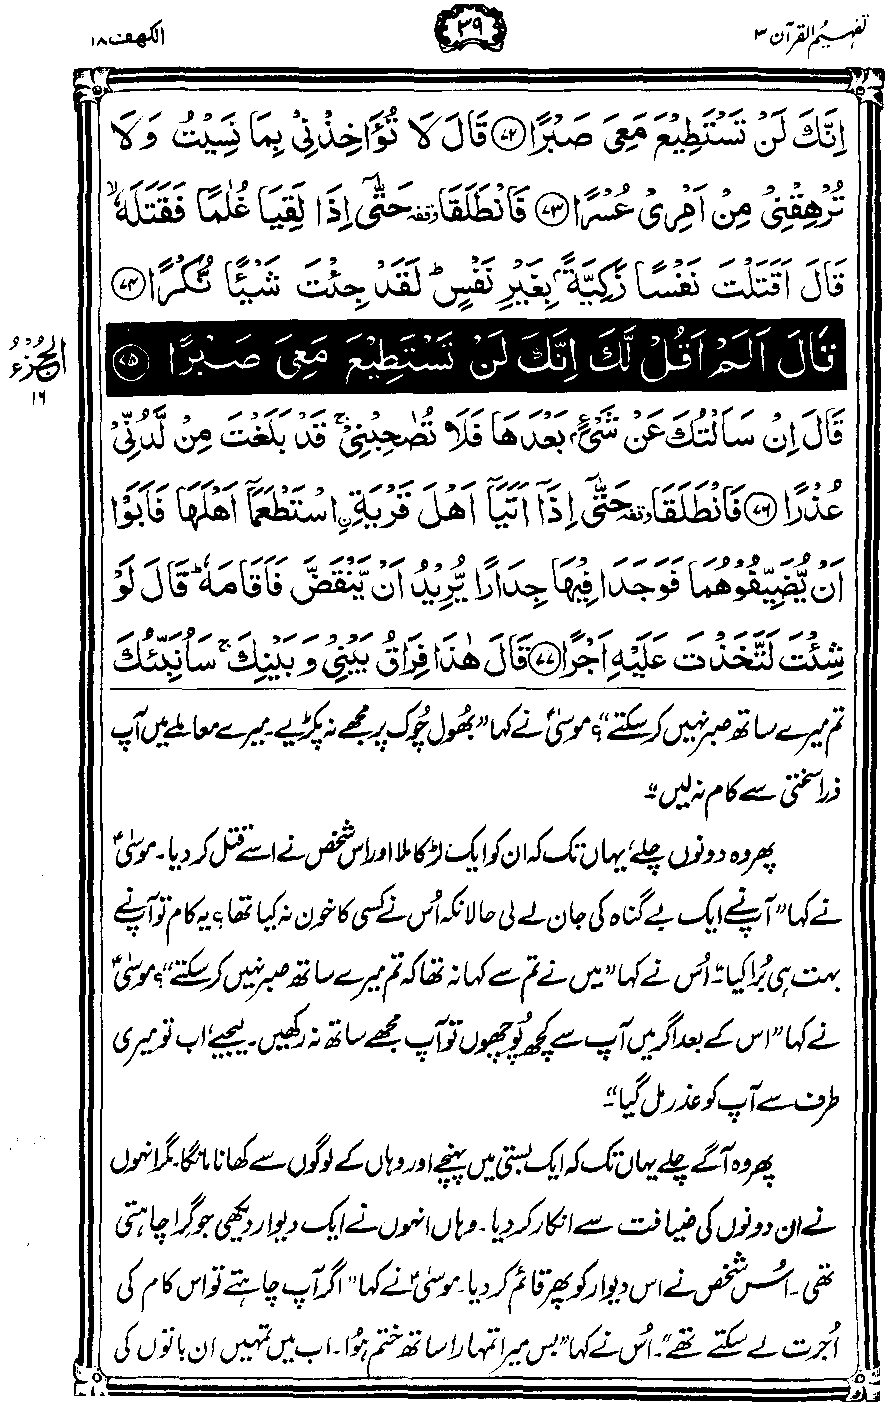 تفہیم القرآن ۳
۳۹
الکہف ۱۸
اِنَّكَ لَنْ تَسْتَطِيْعَ مَعِيَ صَبْرًا ﴿۷۲﴾ قَالَ لَا تُؤَاخِذْنِيْ بِمَا نَسِيْتُ وَلَا
تُرْهِقْنِيْ مِنْ اَمْرِيْ عُسْرًا ﴿۷۳﴾ فَانْطَلَقَا وقفه حَتّٰۤى اِذَا لَقِيَا غُلٰمًا فَقَتَلَهٗ ۙ
قَالَ اَقَتَلْتَ نَفْسًا زَكِيَّةًۢ بِغَيْرِ نَفْسٍ ؕ لَقَدْ جِئْتَ شَيْـًٔا نُّكْرًا ﴿۷۴﴾
الجزء ۱۶
قَالَ اَلَمْ اَقُلْ لَّكَ اِنَّكَ لَنْ تَسْتَطِيْعَ مَعِيَ صَبْرًا ﴿۷۵﴾
قَالَ اِنْ سَاَلْتُكَ عَنْ شَيْءٍۭ بَعْدَهَا فَلَا تُصٰحِبْنِيْ ۚ قَدْ بَلَغْتَ مِنْ لَّدُنِّيْ
عُذْرًا ﴿۷۶﴾ فَانْطَلَقَا وقفه حَتّٰۤى اِذَاۤ اَتَيَاۤ اَهْلَ قَرْيَةِ ۨاسْتَطْعَمَاۤ اَهْلَهَا فَاَبَوْا
اَنْ يُّضَيِّفُوْهُمَا فَوَجَدَا فِيْهَا جِدَارًا يُّرِيْدُ اَنْ يَّنْقَضَّ فَاَقَامَهٗ ؕ قَالَ لَوْ
شِئْتَ لَتَّخَذْتَ عَلَيْهِ اَجْرًا ﴿۷۷﴾ قَالَ هٰذَا فِرَاقُ بَيْنِيْ وَبَيْنِكَ ۚ سَاُنَبِّئُكَ
تم میرے ساتھ صبر نہیں کر سکتے“؟ موسیٰؑ نے کہا ”بھُول چُوک پر مجھے نہ پکڑیے۔ میرے معاملے میں آپ
ذرا سختی سے کام نہ لیں“۔
پھر وہ دونوں چلے، یہاں تک کہ ان کو ایک لڑکا ملا اور اس شخص نے اسے قتل کر دیا۔ موسیٰؑ
نے کہا ”آپ نے ایک بے گناہ کی جان لے لی حالانکہ اُس نے کسی کا خون نہ کیا تھا؟ یہ کام تو آپ نے
بہت ہی بُرا کیا“۔ اُس نے کہا ”میں نے تم سے کہا نہ تھا کہ تم میرے ساتھ صبر نہیں کر سکتے“؟ موسیٰؑ
نے کہا ”اس کے بعد اگر میں آپ سے کچھ پُوچھوں تو آپ مجھے ساتھ نہ رکھیں۔ لیجیے، اب تو میری
طرف سے آپ کو عذر مل گیا“۔
پھر وہ آگے چلے یہاں تک کہ ایک بستی میں پہنچے اور وہاں کے لوگوں سے کھانا مانگا۔ مگر انہوں
نے ان دونوں کی ضیافت سے انکار کر دیا۔ وہاں انہوں نے ایک دیوار دیکھی جو گرا چاہتی
تھی۔ اُس شخص نے اس دیوار کو پھر قائم کر دیا۔ موسیٰؑ نے کہا ”اگر آپ چاہتے تو اس کام کی
اُجرت لے سکتے تھے“۔ اُس نے کہا ”بس میرا تمہارا ساتھ ختم ہوا۔ اب میں تمہیں ان باتوں کی